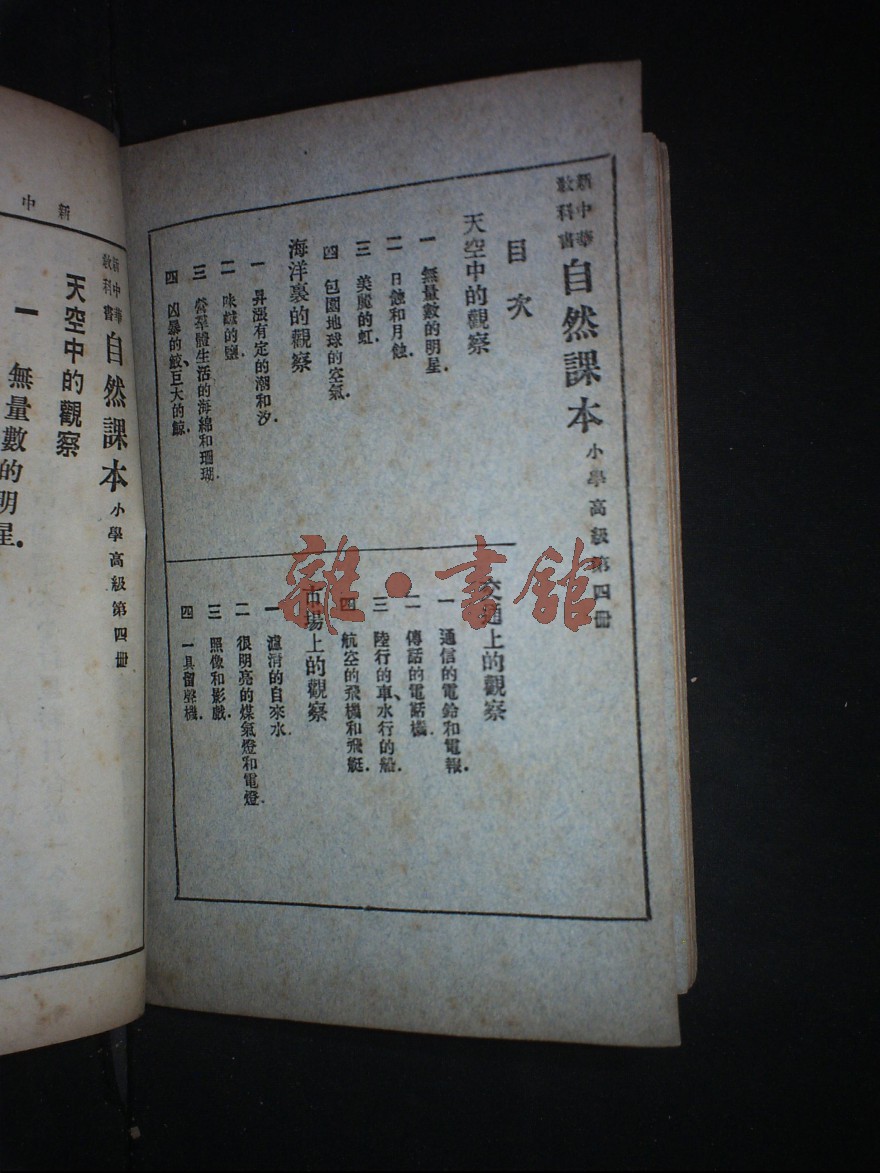 新中華
教科書
自然課本 小學高級第四冊
目次
天空中的觀察
一 無量數的明星.
二 日蝕和月蝕.
三 美麗的虹.
四 包圍地球的空氣.
海洋裏的觀察
一 昇漲有定的潮和汐.
二 味鹹的鹽.
三 營羣體生活的海綿和珊瑚.
四 凶暴的鮫、巨大的鯨.
交通上的觀察
一 通信的電鈴和電報.
二 傳話的電話機.
三 陸行的車、水行的船.
四 航空的飛機和飛艇.
市場上的觀察
一 濾清的自來水
二 很明亮的煤氣燈和電燈.
三 照像和影戲.
四 一具留聲機.
雜·書館
新中
新中華
教科書
自然課本 小學高級第四冊
天空中的觀察
一 無量數的明星.